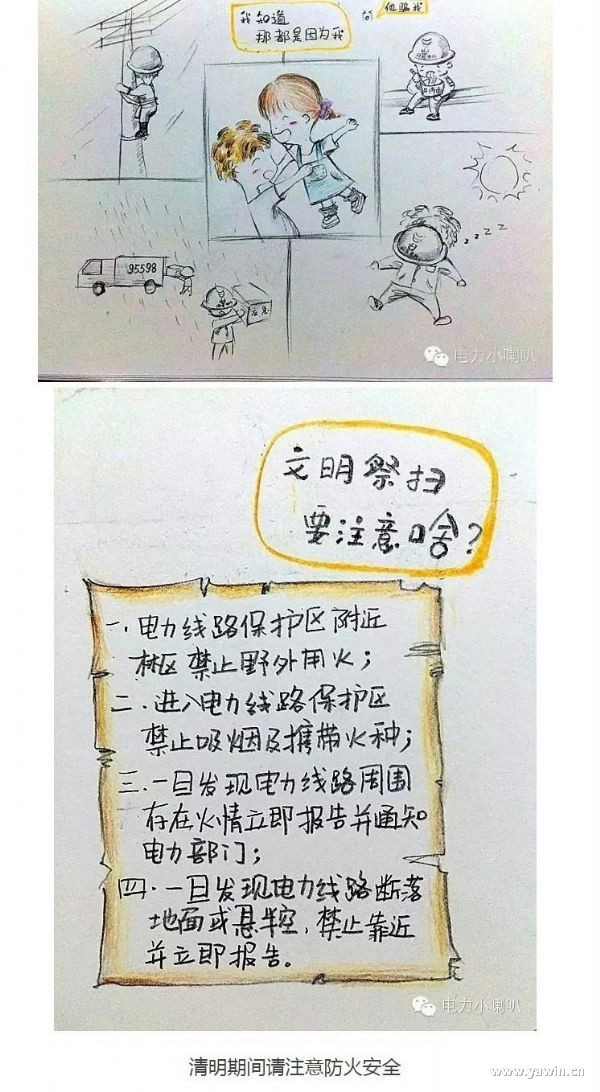 我知道
那都是因为我
他骗我
95598
应急
z z z z
电力小喇叭
文明祭扫
要注意啥?
一.电力线路保护区附近
林区禁止野外用火;
二.进入电力线路保护区
禁止吸烟及携带火种;
三.一旦发现电力线路周围
存在火情立即报告并通知
电力部门;
四.一旦发现电力线路断落
地面或悬空,禁止靠近
并立即报告。
电力小喇叭
清明期间请注意防火安全
www.yawin.cn